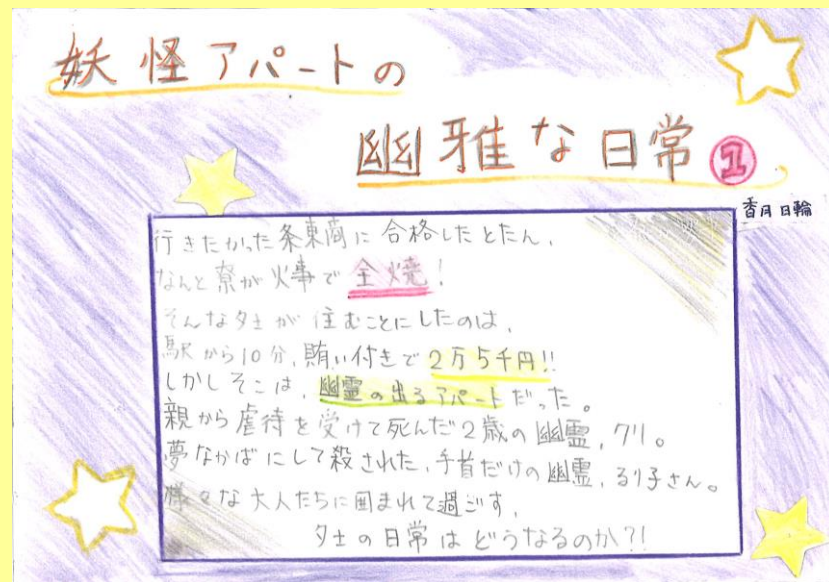 妖怪アパートの
幽雅な日常①
香月日輪
行きたかった条東商に合格したとたん、
なんと寮が火事で全焼!
そんな夕士が住むことにしたのは、
駅から10分、賄い付きで2万5千円!!
しかしそこは、幽霊の出るアパートだった。
親から虐待を受けて死んだ2歳の幽霊、クリ。
夢なかばにして殺された、手首だけの幽霊、るり子さん。
様々な大人たちに囲まれて過ごす、
夕士の日常はどうなるのか?!